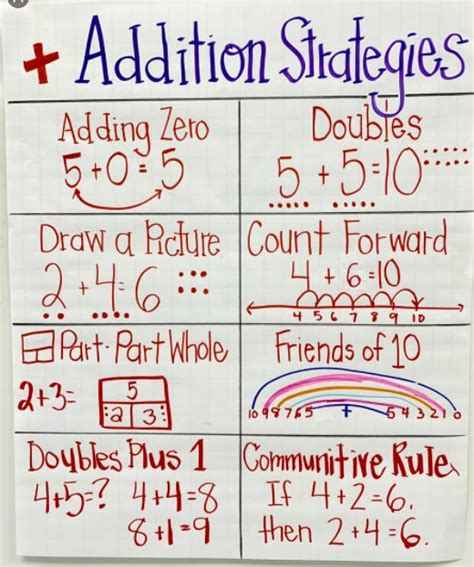 + Addition Strategies
Adding Zero
5+0=5
Doubles
5+5=10
Draw a Picture
2+4=6
Count Forward
4+6=10
4 5 6 7 8 9 10
Part-Part Whole
2+3=
5
2 3
Friends of 10
10 9 8 7 6 5 + 5 4 3 2 1 0
Doubles Plus 1
4+5=? 4+4=8
8+1=9
Communitive Rule
If 4+2=6,
then 2+4=6.